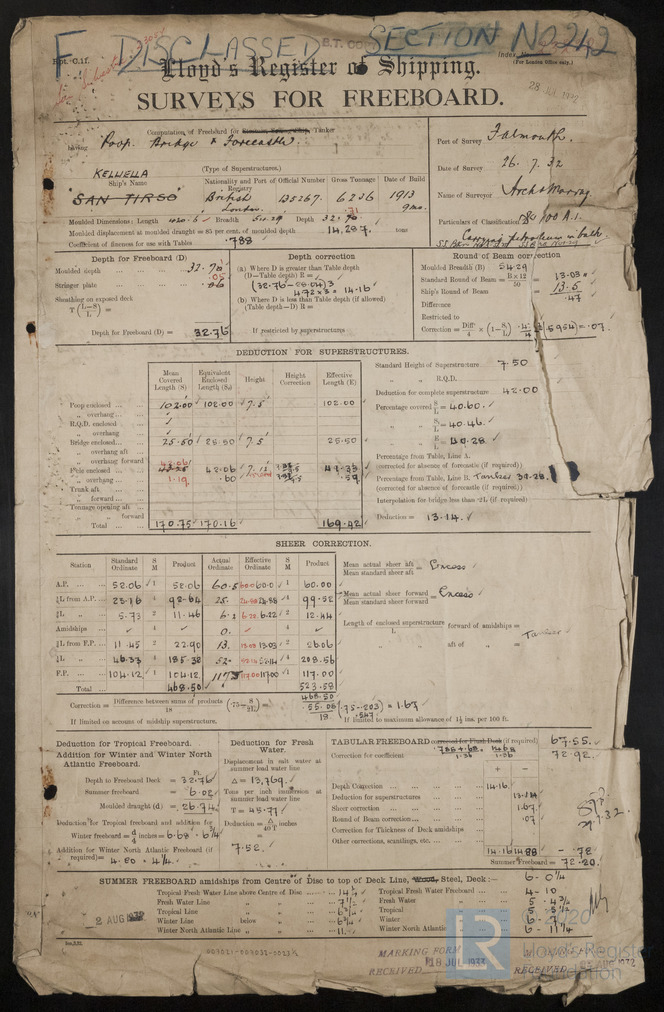 F DISCLASSED SECTION NO 242
Rpt. C.11.
(For London Office only.)
Lloyd's Register of Shipping.
28 JUL 1932
SURVEYS FOR FREEBOARD.
Computation of Freeboard for Tanker
having Poop, Bridge & Forecastle
(Type of Superstructures.)
Port of Survey Falmouth.
Date of Survey 26. 7. 32
Name of Surveyor
Particulars of Classification 100 A.1.
Carrying petroleum in bulk
KELLWELLA
Ship's Name
SAN TIRSO
Nationality and Port of Registry
British
London.
Official Number
135267.
Gross Tonnage
6236
Date of Build
1913
9mo.
Moulded Dimensions: Length 420.6 Breadth 54.29 Depth 32.70
Moulded displacement at moulded draught = 85 per cent. of moulded depth 14,287. tons
Coefficient of fineness for use with Tables .788
Depth for Freeboard (D)
Moulded depth 32.70
Stringer plate .06
Sheathing on exposed deck
T (L-S/L) =
Depth for Freeboard (D) = 32.76
Depth correction
(a) Where D is greater than Table depth
(D—Table depth) R =
(32.76 - 28.04) 3
4.72 x 3 = 14.16
(b) Where D is less than Table depth (if allowed)
(Table depth—D) R =
If restricted by superstructures
Round of Beam correction
Moulded Breadth (B) 54.29
Standard Round of Beam = B×12/50 = 13.03
Ship's Round of Beam = 13.5
Difference .47
Restricted to
Correction = Diff/4 × (1-S₁/L) = .47/4 (.5954) = .07
DEDUCTION FOR SUPERSTRUCTURES.
Mean Covered Length (S) Equivalent Enclosed Length (S₁) Height Height Correction Effective Length (E)
Poop enclosed 102.00 102.00 7.5 102.00
„ overhang
R.Q.D. enclosed
„ overhang
Bridge enclosed 25.50 25.50 7.5 25.50
„ overhang aft
„ overhang forward
F'cle enclosed 42.06 42.06 41.33
„ overhang 1.19 .60 .59
Trunk aft
„ forward
Tonnage opening aft
„ forward
Total 170.75 170.16 169.42
Standard Height of Superstructure 7.50
„ „ R.Q.D.
Deduction for complete superstructure 42.00
Percentage covered S/L = 40.60.
„ S₁/L = 40.46.
„ E/L = 40.28.
Percentage from Table, Line A.
(corrected for absence of forecastle (if required))
Percentage from Table, Line B. Tanker 31.28.
(corrected for absence of forecastle (if required))
Interpolation for bridge less than ·2L (if required)
Deduction = 13.14.
SHEER CORRECTION.
Station Standard Ordinate S M Product Actual Ordinate Effective Ordinate S M Product
A.P. 52.06 1 52.06 60.5 60.0 1 60.00
⅙L from A.P. 23.16 4 92.64 25. 24.88 4 99.52
⅓L „ 5.73 2 11.46 6.2 6.22 2 12.44
Amidships 4 0. 4
⅓L from F.P. 11.45 2 22.90 13. 13.03 2 26.06
⅙L „ 46.33 4 185.32 52. 52.14 4 208.56
F.P. 104.12 1 104.12 117.5 117.00 1 117.00
Total 468.50 523.58
Mean actual sheer aft / Mean standard sheer aft = Excess
Mean actual sheer forward / Mean standard sheer forward = Excess
Length of enclosed superstructure forward of amidships =
L
„ „ aft of „ =
Tanker
Correction = Difference between sums of products / 18 (·75 - S/2L) = 468.50 / 55.08 / 18 (.75 - .203) = 1.67
.547
If limited on account of midship superstructure.
If limited to maximum allowance of 1½ ins. per 100 ft.
Deduction for Tropical Freeboard.
Addition for Winter and Winter North Atlantic Freeboard.
Ft.
Depth to Freeboard Deck = 32.76
Summer freeboard = 6.02
Moulded draught (d) = 26.74
Deduction for Tropical freeboard and addition for
Winter freeboard = d/4 inches = 6.68 = 6¾
Addition for Winter North Atlantic Freeboard (if required) = 4.20 = 4¼
Deduction for Fresh Water.
Displacement in salt water at summer load water line
Δ = 13,769.
Tons per inch immersion at summer load water line
T = 45.77
Deduction = Δ/40T inches
= 7.52.
TABULAR FREEBOARD corrected for Flush Deck (if required) 67.55.
Correction for coefficient 72.92.
+ -
Depth Correction 14.16.
Deduction for superstructures 13.14
Sheer correction 1.67.
Round of Beam correction .07
Correction for Thickness of Deck amidships
Other corrections, scantlings, etc.
14.16 14.88 - .72
Summer Freeboard = 72.20.
29.7.32
SUMMER FREEBOARD amidships from Centre of Disc to top of Deck Line, Wood, Steel, Deck:— 6 - 0¼
Tropical Fresh Water Line above Centre of Disc 14¼
Fresh Water Line „ „ 7½
Tropical Line „ „ 6¾
Winter Line below „ 6¾
Winter North Atlantic Line „ „ 11.
Tropical Fresh Water Freeboard 4 - 10
Fresh Water „ 5 - 4¾
Tropical „ 5 - 5½
Winter „ 6 - 7
Winter North Atlantic „ 6 - 11¼
2 AUG 1932
003021-003031-0023
MARKING FORM
RECEIVED 18 JUL 1933
RECEIVED AUG 1932
LR
2020
Lloyd's Register
Foundation